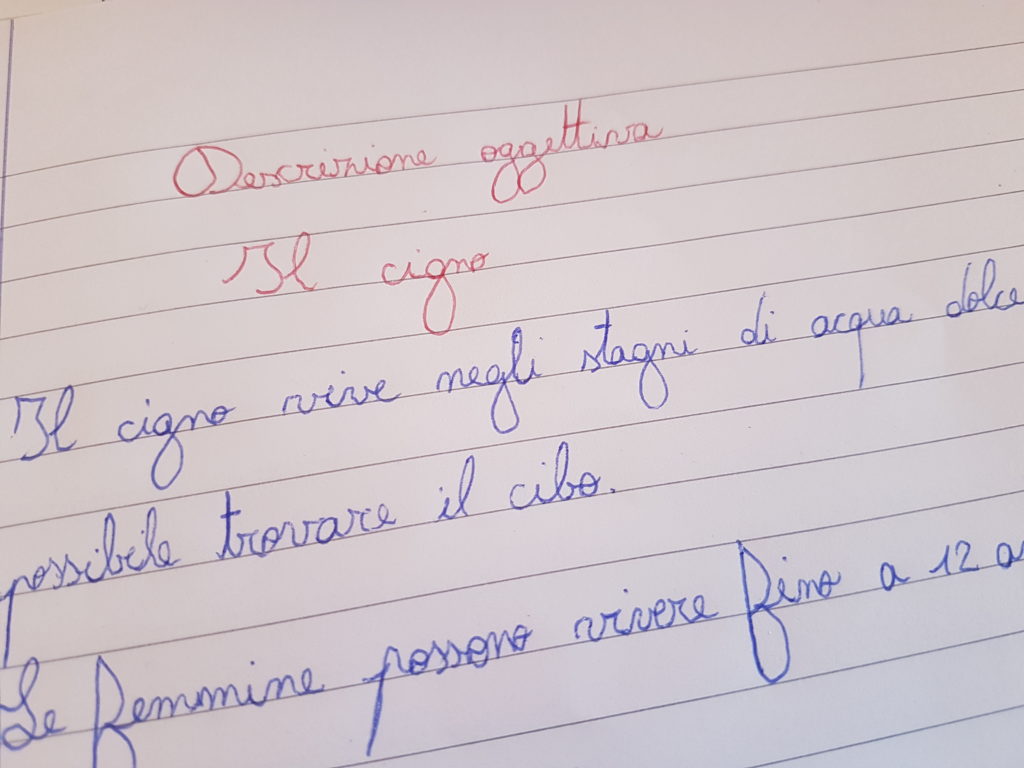 Descrizione oggettiva
Il cigno
Il cigno vive negli stagni di acqua dolce
possibile trovare il cibo.
Le femmine possono vivere fino a 12 a